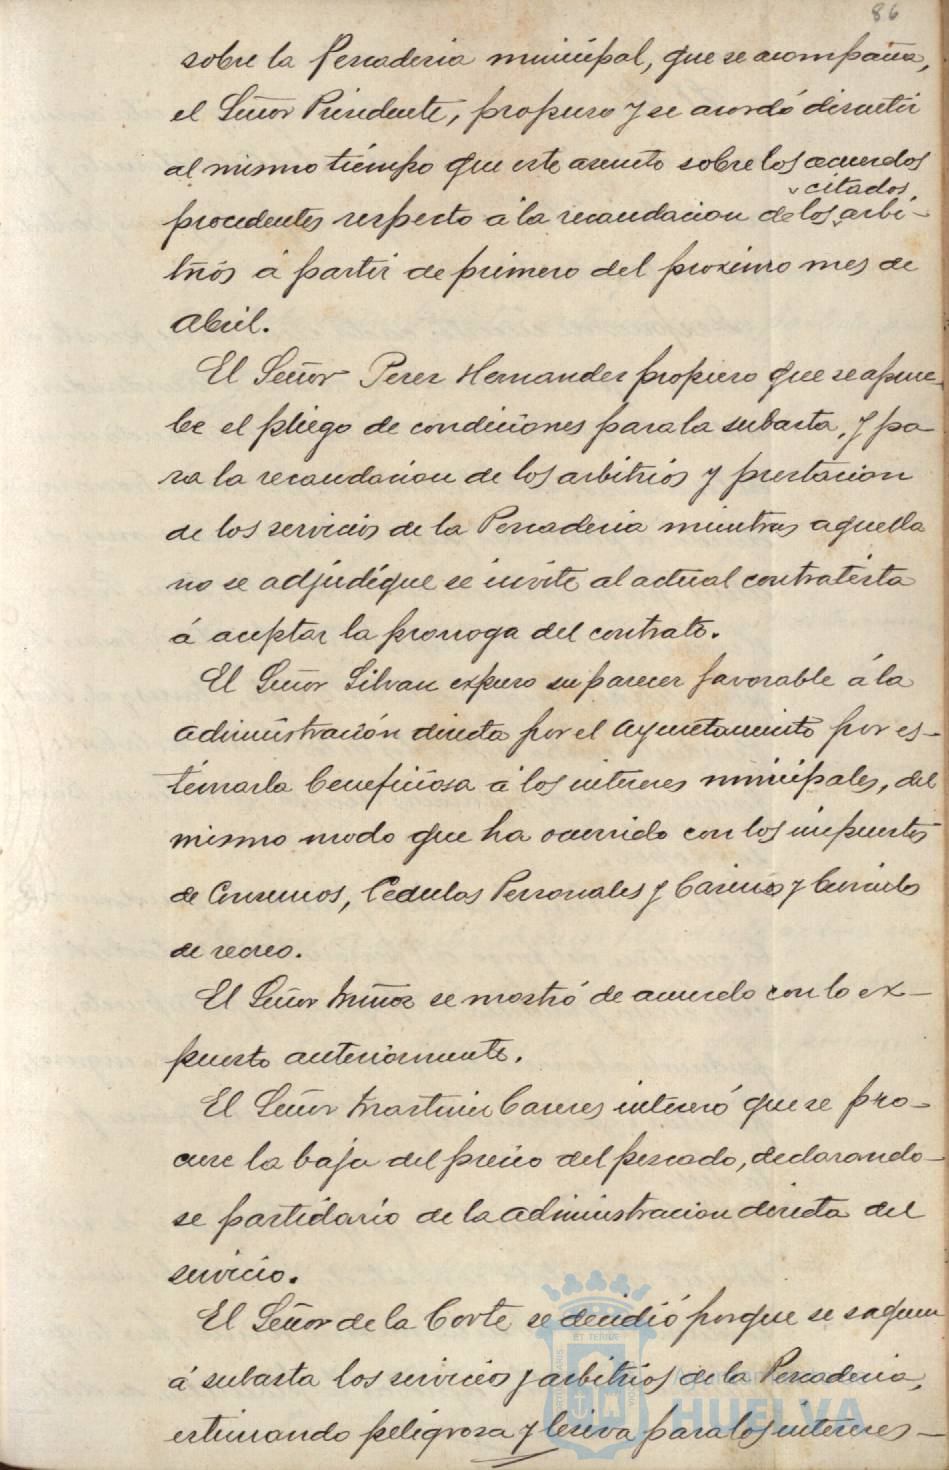 86
sobre la Pescaderia municipal, que se acompaña,
el Señor Presidente, propuso y se acordó discutir
al mismo tiempo que este asunto sobre los acuerdos
citados
procedentes respecto á la recaudacion de los arbi-
trios á partir de primero del proximo mes de
Abril.
El Señor Perez Hernandez propuso que se aprue-
be el pliego de condiciones para la subasta, y pa-
ra la recaudacion de los arbitrios y prestacion
de los servicios de la Pescaderia mientras aquella
no se adjudique se invite al actual contratista
á aceptar la prorroga del contrato.
El Señor Silvan expuso su parecer favorable á la
administración directa por el Ayuntamiento por es-
timarla beneficiosa á los intereses municipales, del
mismo modo que ha ocurrido con los impuestos
de Consumos, Cedulas Personales y Casinos y Circulos
de recreo.
El Señor Muñoz se mostró de acuerdo con lo ex-
puesto anteriormente.
El Señor Martinez Caceres interesó que se pro-
cure la baja del precio del pescado, declarando-
se partidario de la administracion directa del
servicio.
El Señor de la Corte se decidió porque se saquen
á subasta los servicios y arbitrios de la Pescaderia,
estimando peligrosa y lesiva para los intereses-
ET TERRAE
Ayuntamiento de
HUELVA